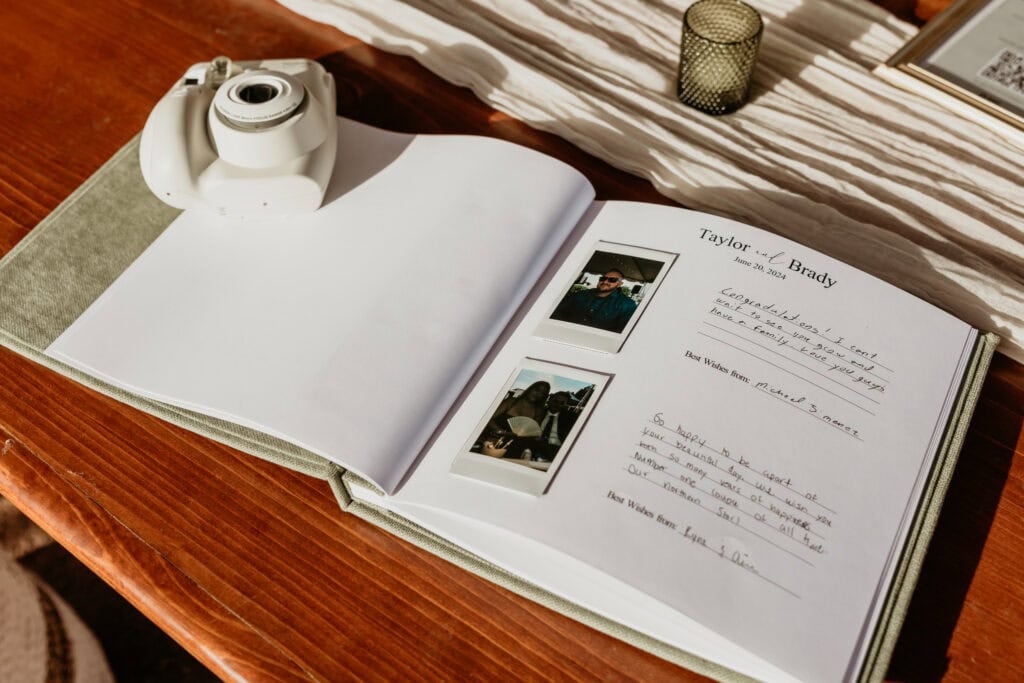 Taylor and Brady
June 20, 2024
Congradulations! I cant
wait to see you grow and
have a family Love you guys
Best Wishes from: Michael Simenez
So happy to be apart of
your beautiful day. We wish you
both so many years of happiness
Number one couple of all time
Our northern Star!
Best Wishes from: Ryan &